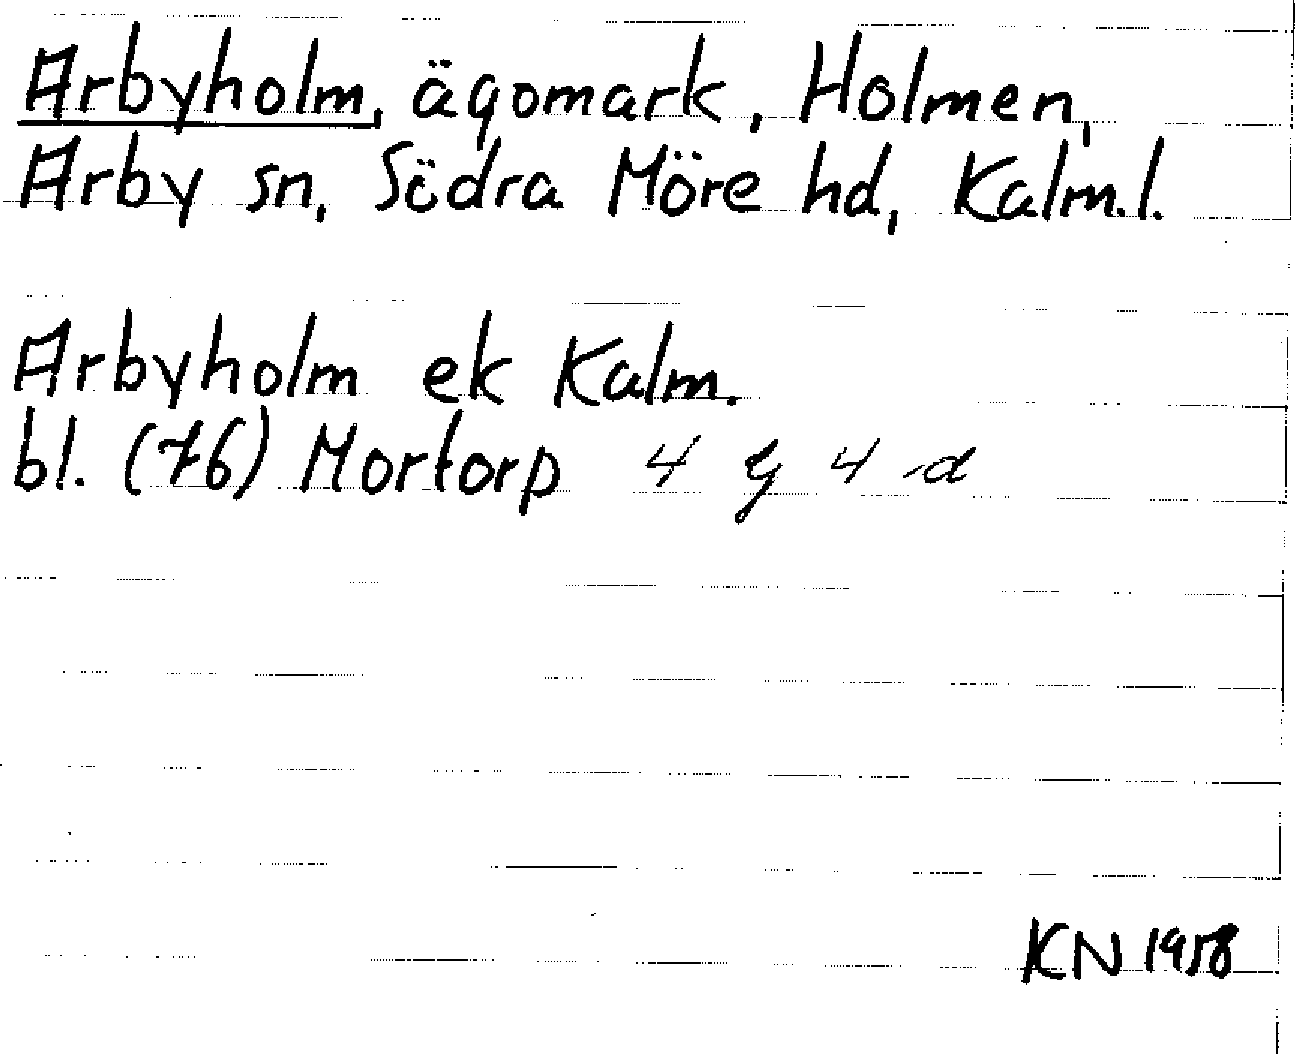 Arbyholm, ägomark, Holmen,
Arby sn, Södra Möre hd, Kalm.l.
Arbyholm ek Kalm.
bl. (76) Mortorp 4 G 4 d
KN 1958